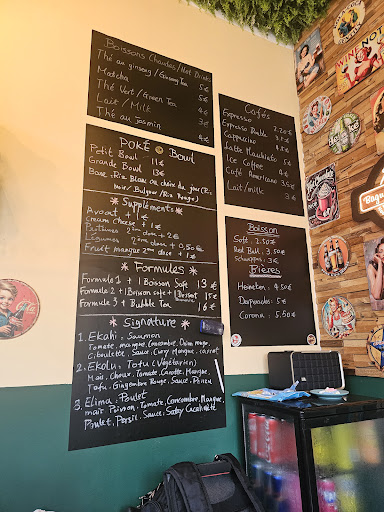 Boissons Chaudes/Hot Drinks
Thé au ginseng/Ginseng Tea 5€
Matcha 5€
Thé Vert/Green Tea
Lait/Milk 3€
Thé au Jasmin 4€
POKÉ Bowl
Petit Bowl 11€
Grande Bowl 13€
Base: Riz Blanc au choix du jour (Riz
Noir/Bulgour/Riz Rouge)
* Suppléments *
Avocat + 1€
Cream Cheese + 1€
Protéines 2ème dose + 2€
Légumes 2ème dose + 0,50€
Fruit mangue 2ème dose + 1€
* Formules *
Formule 1 + 1 Boisson Soft 13€
Formule 2 + 1 Boisson soft + 1 Dessert 15€
Formule 3 + Bubble Tea 16€
* Signature *
1. Ekahi: Saumon
Tomate, mangue, Concombre, Oignon rouge,
ciboulette, Sauce Curry Mangue, carrot
2. Ekolu: Tofu (Végétarien)
Maïs, Choux, Tomate, Carotte, Mangue,
Tofu, Gingembre Rouge, Sauce Ponzu
3. Elima: Poulet
maïs Poivron, Tomate, Concombre, Mangue,
Poulet, Persil, Sauce Satay Cacahuète
Cafés
Espresso 2.20€
Espresso Double 3.50€
Cappuccino 3.50€
Latte Macchiato 3.50€
Ice Coffee 4€
Café Americano 3.50€
Lait/milk 3€
Boisson
Soft 2.50€
Red Bull 3.50€
Schweppes 3€
Bières
Heineken 4.50€
Desperados 5.50€
Corona 5.50€
WIN NOT
Ice